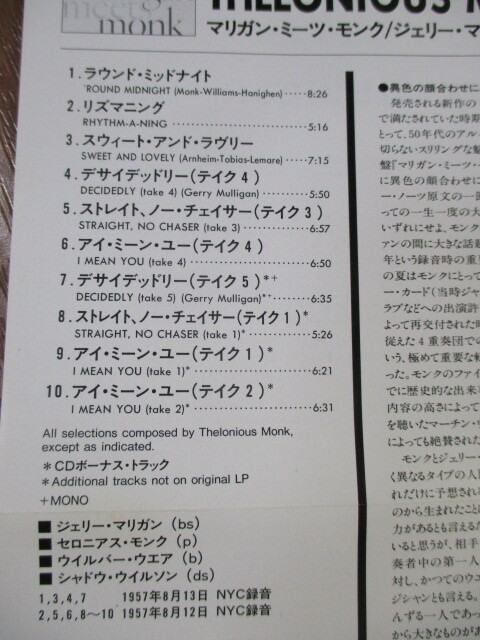 meet
monk
THELONIOUS M
マリガン・ミーツ・モンク/ジェリー・マ
1. ラウンド・ミッドナイト
'ROUND MIDNIGHT (Monk-Williams-Hanighen) ·····8:26
2. リズマニング
RHYTHM-A-NING ·····5:16
3. スウィート・アンド・ラヴリー
SWEET AND LOVELY (Arnheim-Tobias-Lemare) ·····7:15
4. デサイデッドリー(テイク4)
DECIDEDLY (take 4) (Gerry Mulligan) ·····5:50
5. ストレイト、ノー・チェイサー(テイク3)
STRAIGHT, NO CHASER (take 3) ·····6:57
6. アイ・ミーン・ユー(テイク4)
I MEAN YOU (take 4) ·····6:50
7. デサイデッドリー(テイク5)*+
DECIDEDLY (take 5) (Gerry Mulligan)*+ ·····6:35
8. ストレイト、ノー・チェイサー(テイク1)*
STRAIGHT, NO CHASER (take 1)* ·····5:26
9. アイ・ミーン・ユー(テイク1)*
I MEAN YOU (take 1)* ·····6:21
10. アイ・ミーン・ユー(テイク2)*
I MEAN YOU (take 2)* ·····6:31
All selections composed by Thelonious Monk,
except as indicated.
*CDボーナス・トラック
*Additional tracks not on original LP
+MONO
■ ジェリー・マリガン (bs)
■ セロニアス・モンク (p)
■ ウイルバー・ウエア (b)
■ シャドウ・ウイルソン (ds)
1,3,4,7 1957年8月13日 NYC録音
2,5,6,8〜10 1957年8月12日 NYC録音
●異色の顔合わせに
発売される新作の
で満たされていた時期
とって、50年代のアル
切らないスリリングな魅
盤『マリガン・ミーツ・
に異色の顔合わせに
ー・ノーツ原文の一節
っての一生一度の大
いずれにせよ、モンク
ァンの間に大きな話題
年という録音時の重要
の夏はモンクにとって
ー・カード(当時ジャ
ラブなどへの出演許
よって再交付された時
従えた4重奏団での
いう、極めて重要な転
った。モンクのファイ
でに歴史的な出来事
内容の高さによって
を聴いたマーチン・ウ
によっても絶賛された
モンクとジェリー・
く異なるタイプの人間
れだけに予想される
のから生まれたこと
力があるとも言えるだ
いると思うが、相手
奏者中の第一人
対し、かつてのウエ
ジシャンとも言える。
んずる一人であっ
から大きなものが